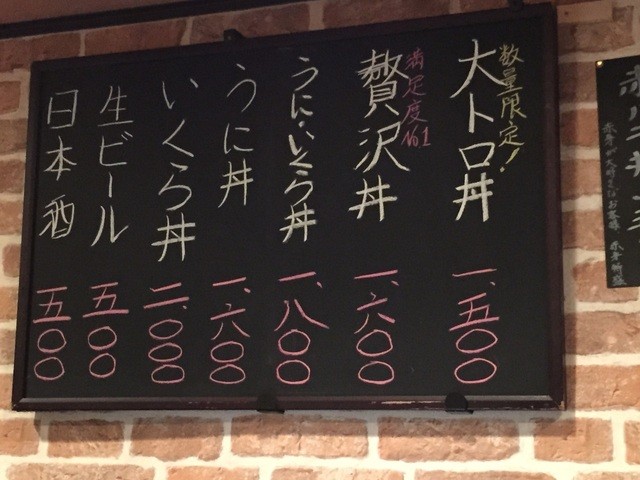 数量限定！
大トロ丼 一、五〇〇
満足度No1
贅沢丼 一、六〇〇
うにいくら丼 一、八〇〇
うに丼 一、六〇〇
いくら丼 二、〇〇〇
生ビール 五〇〇
日本酒 五〇〇